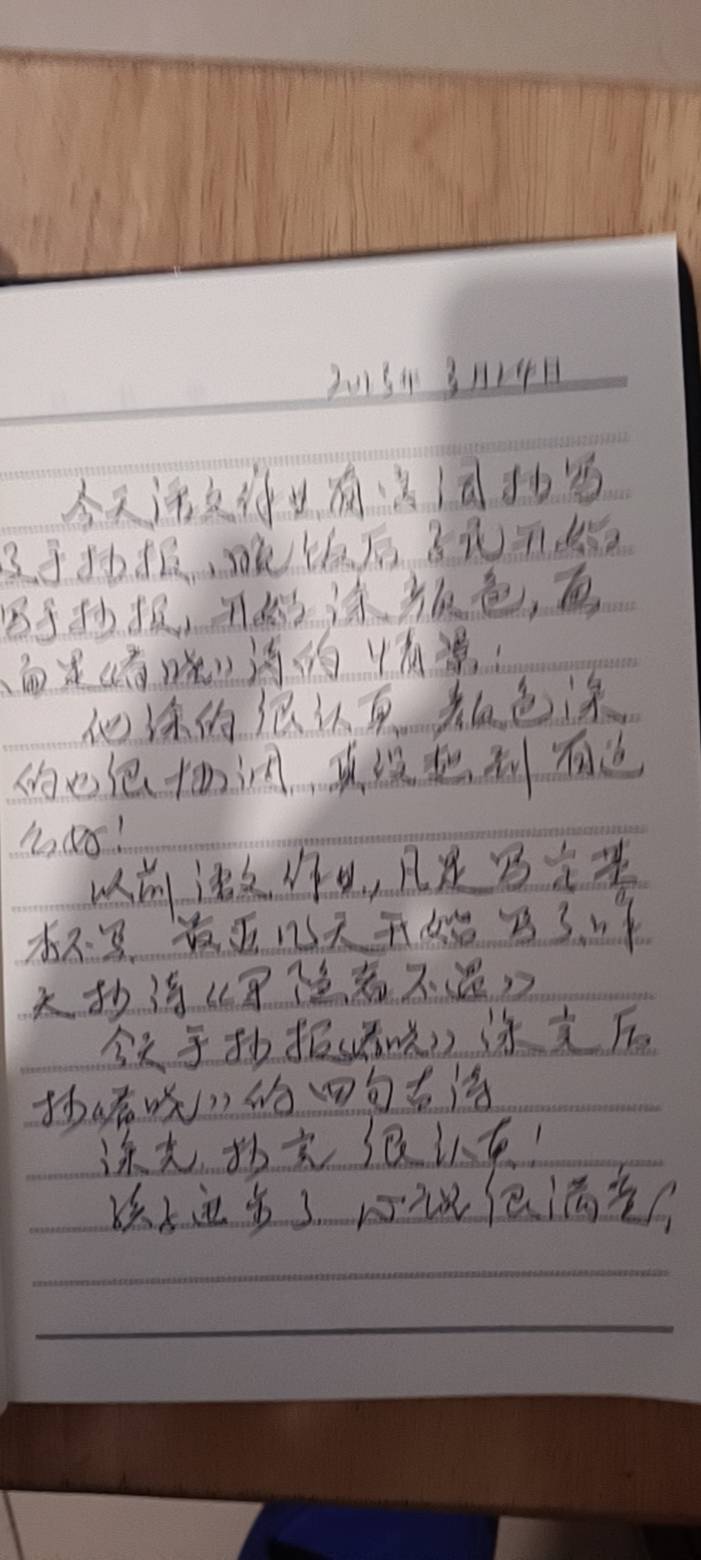 2025年3月24日
今天语文作业有古词抄写
手抄报,晚饭后 开始
写手抄报,开始涂颜色,画
面是《春晓》诗的情景!
他涂的很认真,颜色涂
的也很协调,真没想到有这
么好!
以前语文作业,凡是写字基
本不写,最近几天开始写了,昨
天抄诗《寻隐者不遇》
今天手抄报《春晓》涂完后
抄《春晓》的四句古诗
涂完,抄完很认真!
孩子进步了,心情很满意!